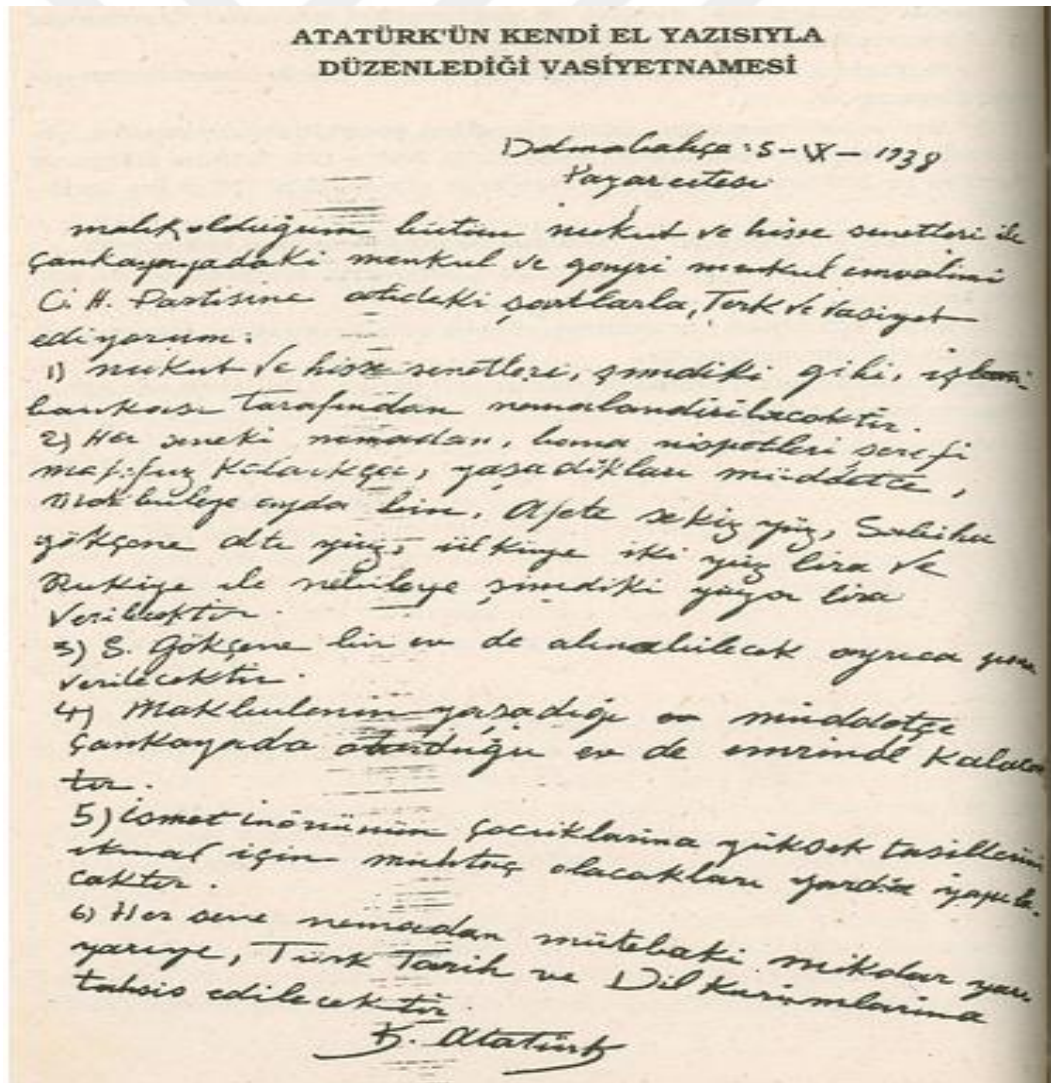 ATATÜRK'ÜN KENDİ EL YAZISIYLA
DÜZENLEDİĞİ VASİYETNAMESİ
Dolmabahçe: 5-IX-1938
Pazartesi
malik olduğum bütün nukut ve hisse senetleri ile
Çankayadaki menkul ve gayri menkul emvalimi
C. H. Partisine atideki şartlarla, Terk ve vasiyet
ediyorum:
1) nukut ve hisse senetleri, şimdiki gibi, iş
bankası tarafından nemalandırılacaktır.
2) Her seneki nemadan, bana nispetleri şerefi
mahfuz kaldıkça, yaşadıkları müddetçe,
Makbuleye ayda bin, Afete sekiz yüz, Sabiha
gökçene altı yüz, ülküye iki yüz lira ve
Rukiye ile nebileye şimdiki yüzer lira
verilecektir.
3) S. Gökçene bir ev de alınabilecek ayrıca para
verilecektir.
4) Makbulenin yaşadığı müddetçe
Çankayada oturduğu ev de emrinde kalacak
tır.
5) ismet inönünün çocuklarına yüksek tahsillerini
ikmal için muhtaç olacakları yardım yapıla-
caktır.
6) Her sene nemadan mütebaki miktar yarı
yarıya, Türk Tarih ve Dil Kurumlarına
tahsis edilecektir.
K. Atatürk